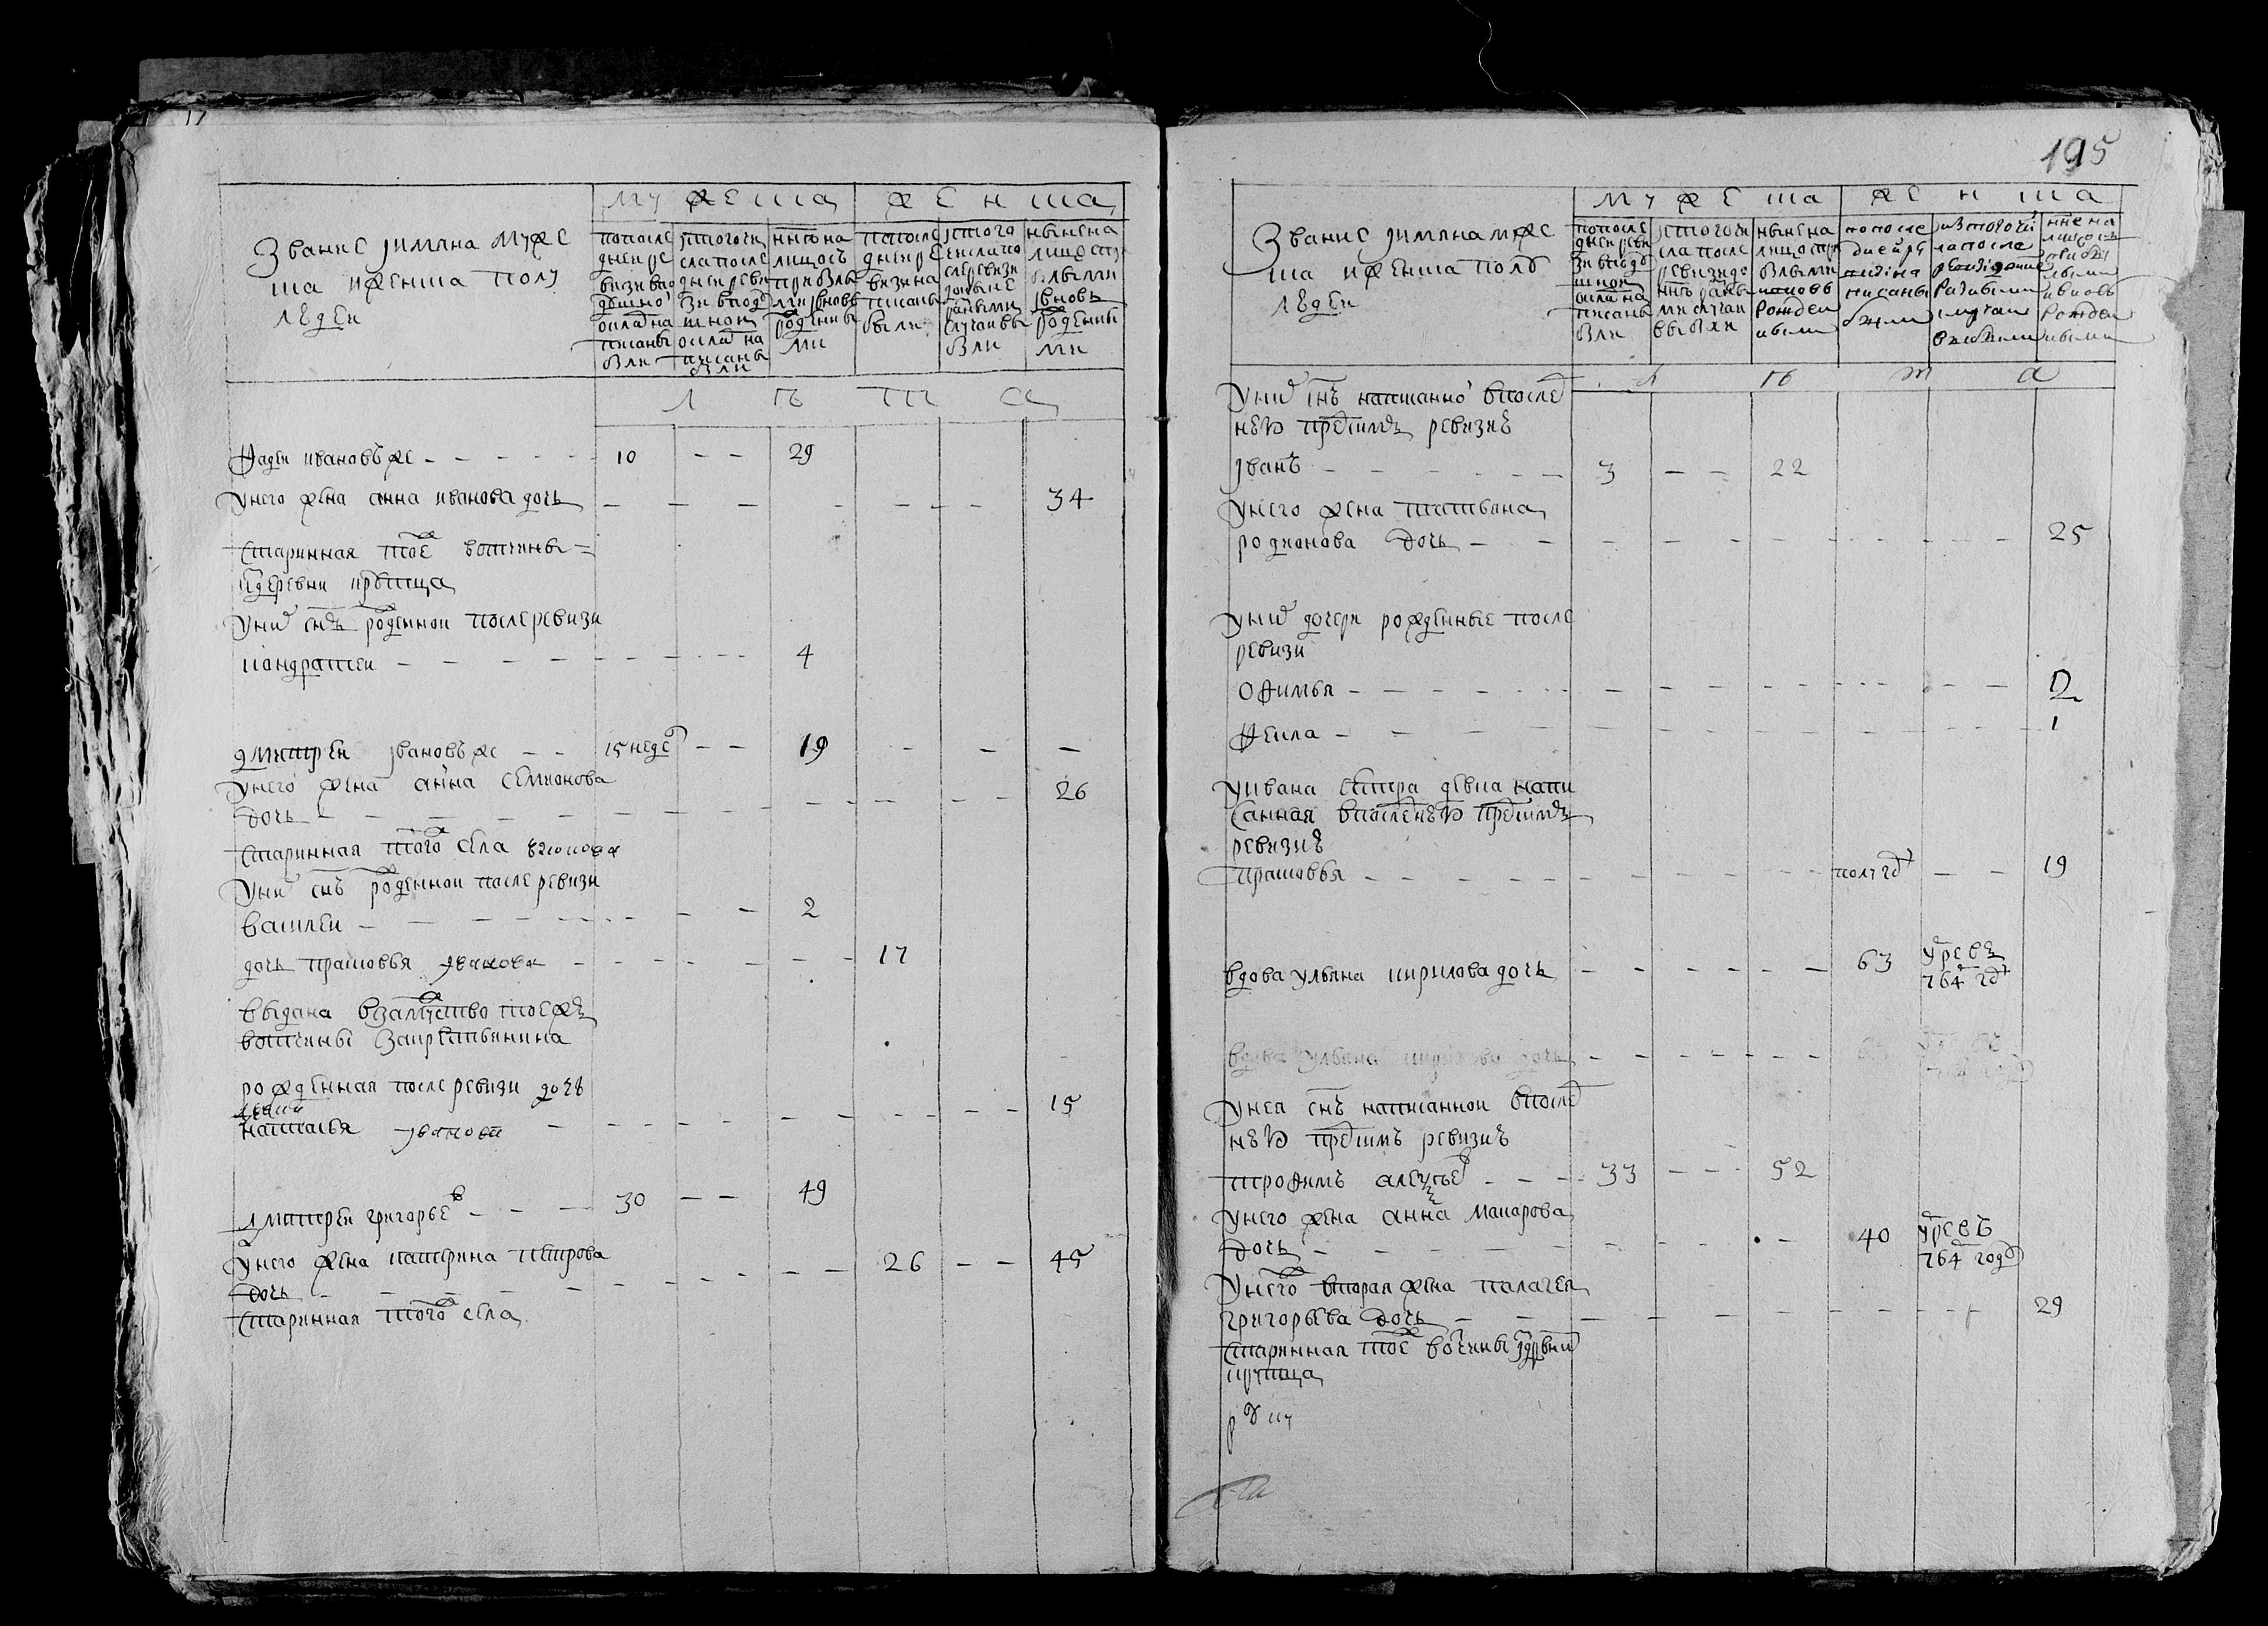 17
Звание јимѧна муже
ска иженска полу
людеи
мужеска
женска
попосле
днеи ре
визи впо
душно
оклад на
писаны
были
јстого чи
сла после
днеи реви
зи впод
шнои
оклад на
писаны
были
нне на
лицо съ
прибылы
ми јвновь
рожденны
ми
попосле
днеи ре
визи на
писаны
были
јстого
числа по
сле ревизи
разными
случаи вы
были
ныне на
лицо съ
прибылыми
јвновь
рожденны
ми
Л Ѣ Т А
Фадеи ивановъ же 10 29
Унего жена анна иванова дочь 34
Старинная тоеж вотчины
деревни
Уних снъ рожденнои после ревизи
кондратеи 4
дмитреи јвановъ же 15 недел 19
Унего жена анна семионова
дочь 26
Старинная тогож села
Уних снъ рожденнои после ревизи
василеи 2
дочь прасковья јванова 17
выдана взамужство тоежъ
вотчины закрестьянина
рожденная после ревизи дочь
девка
наталья јванова 15
дмитреи григорьев 30 49
Унего жена катерина петрова
дочь 26 45
Старинная тогож села
195
Звание јимѧна муже
ска иженска полу
людеи
мужеска
женска
попосле
днеи реви
зи вподу
шнои
оклад на
писаны
были
јстого чи
сла после
ревизи
разны
ми случаи
выбыли
ныне на
лицо спри
былыми
ивновь
рожден
ными
попосле
днеи ре
визи на
писаны
были
изтогочи
сла после
ревизи
разными
случаи
выбыли
нне на
лицо съ
прибы
лыми
ивновь
рожден
ными
Л Ѣ Т А
Уних снъ написанно впослед
нею предъ симъ ревизиѣ
јванъ 3 22
Унего жена татьяна
родионова дочь 25
Уних дочери рожденные после
ревизи
офимья 2
фекла 1
Уивана сестра девка напи
санная впоследнею предъ симъ
ревизиѣ
прасковья полугод 19
вдова ульяна кирилова дочь 63 умре въ
764 год
вдова ульяна кирилова дочь
Унея снъ написаннои впослед
нею предъ симъ ревизиѣ
трофимъ алексеев 33 52
Унего жена анна макарова
дочь 40 умре въ
764 году
Унегож вторая жена палагея
григорьева дочь 29
Старинная тоеж вотчины јздеревни